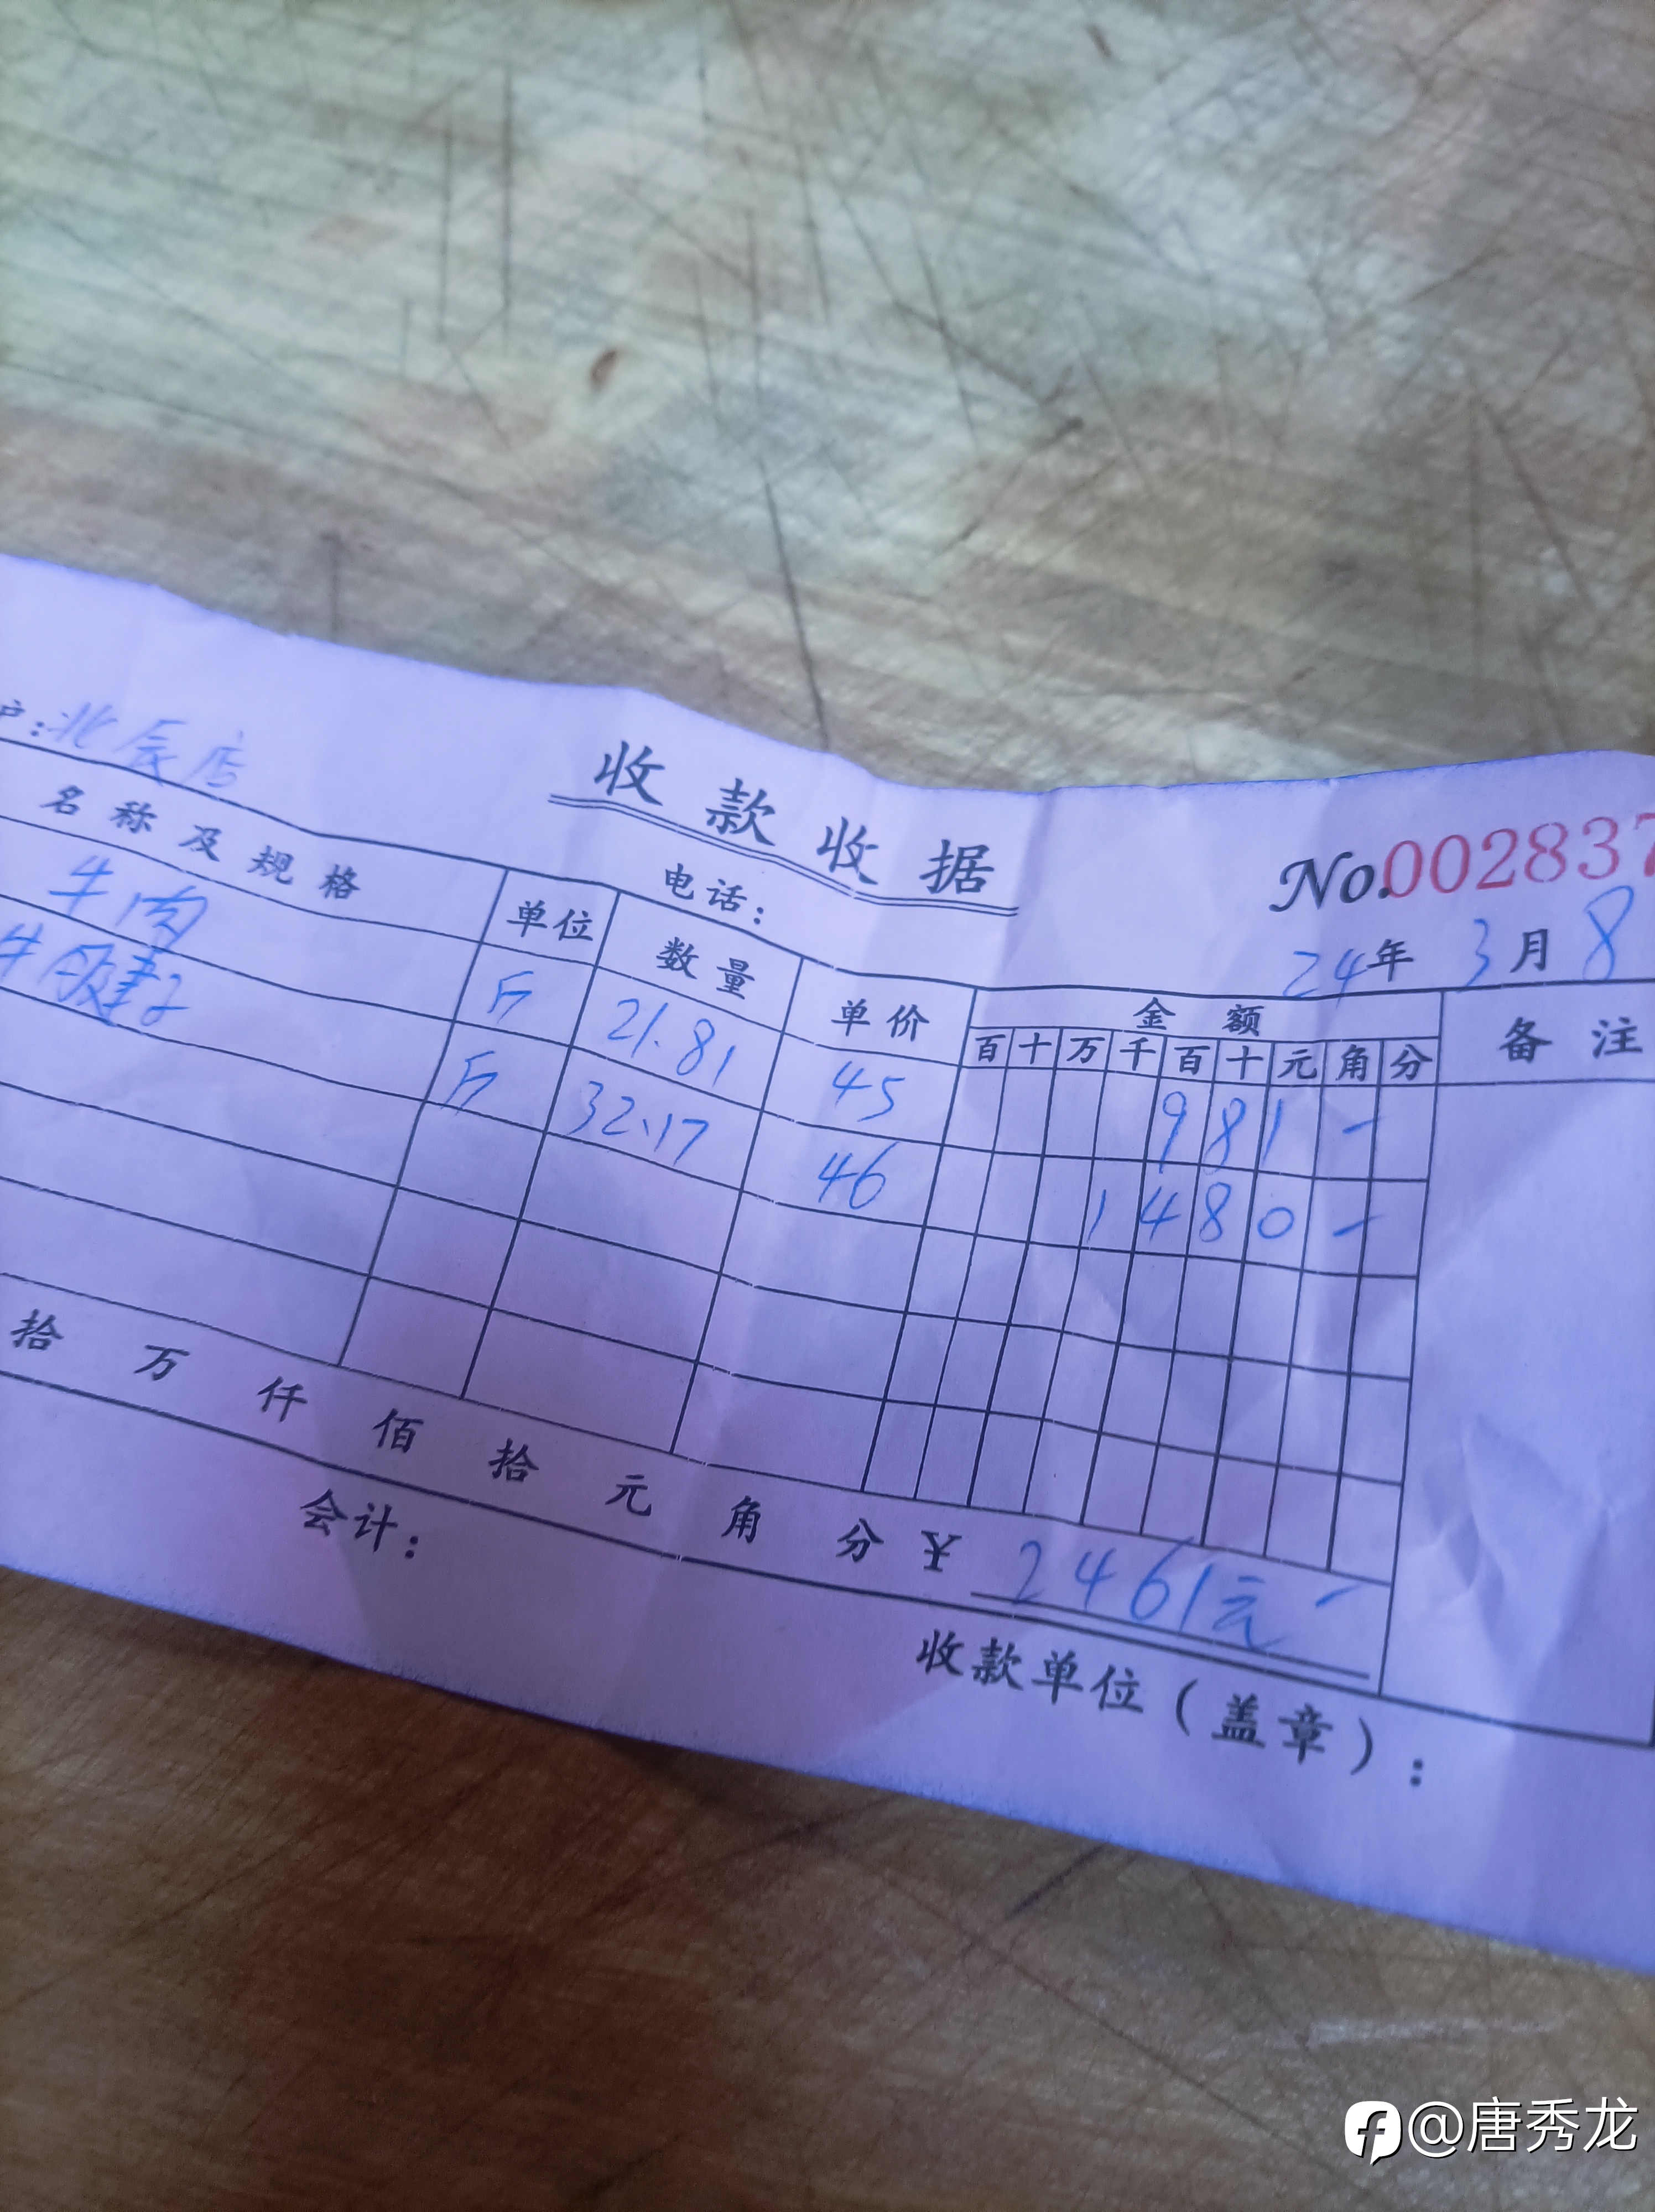 收款收据
No.002837
户:北辰店
电话:
24年 3月 8
名称及规格 单位 数量 单价 金额 备注
百 十 万 千 百 十 元 角 分
牛肉 斤 21.81 45 9 8 1 -
牛腱子 斤 32.17 46 1 4 8 0 -
拾 万 仟 佰 拾 元 角 分 ¥ 2461元 -
会计:
收款单位(盖章):
@唐秀龙